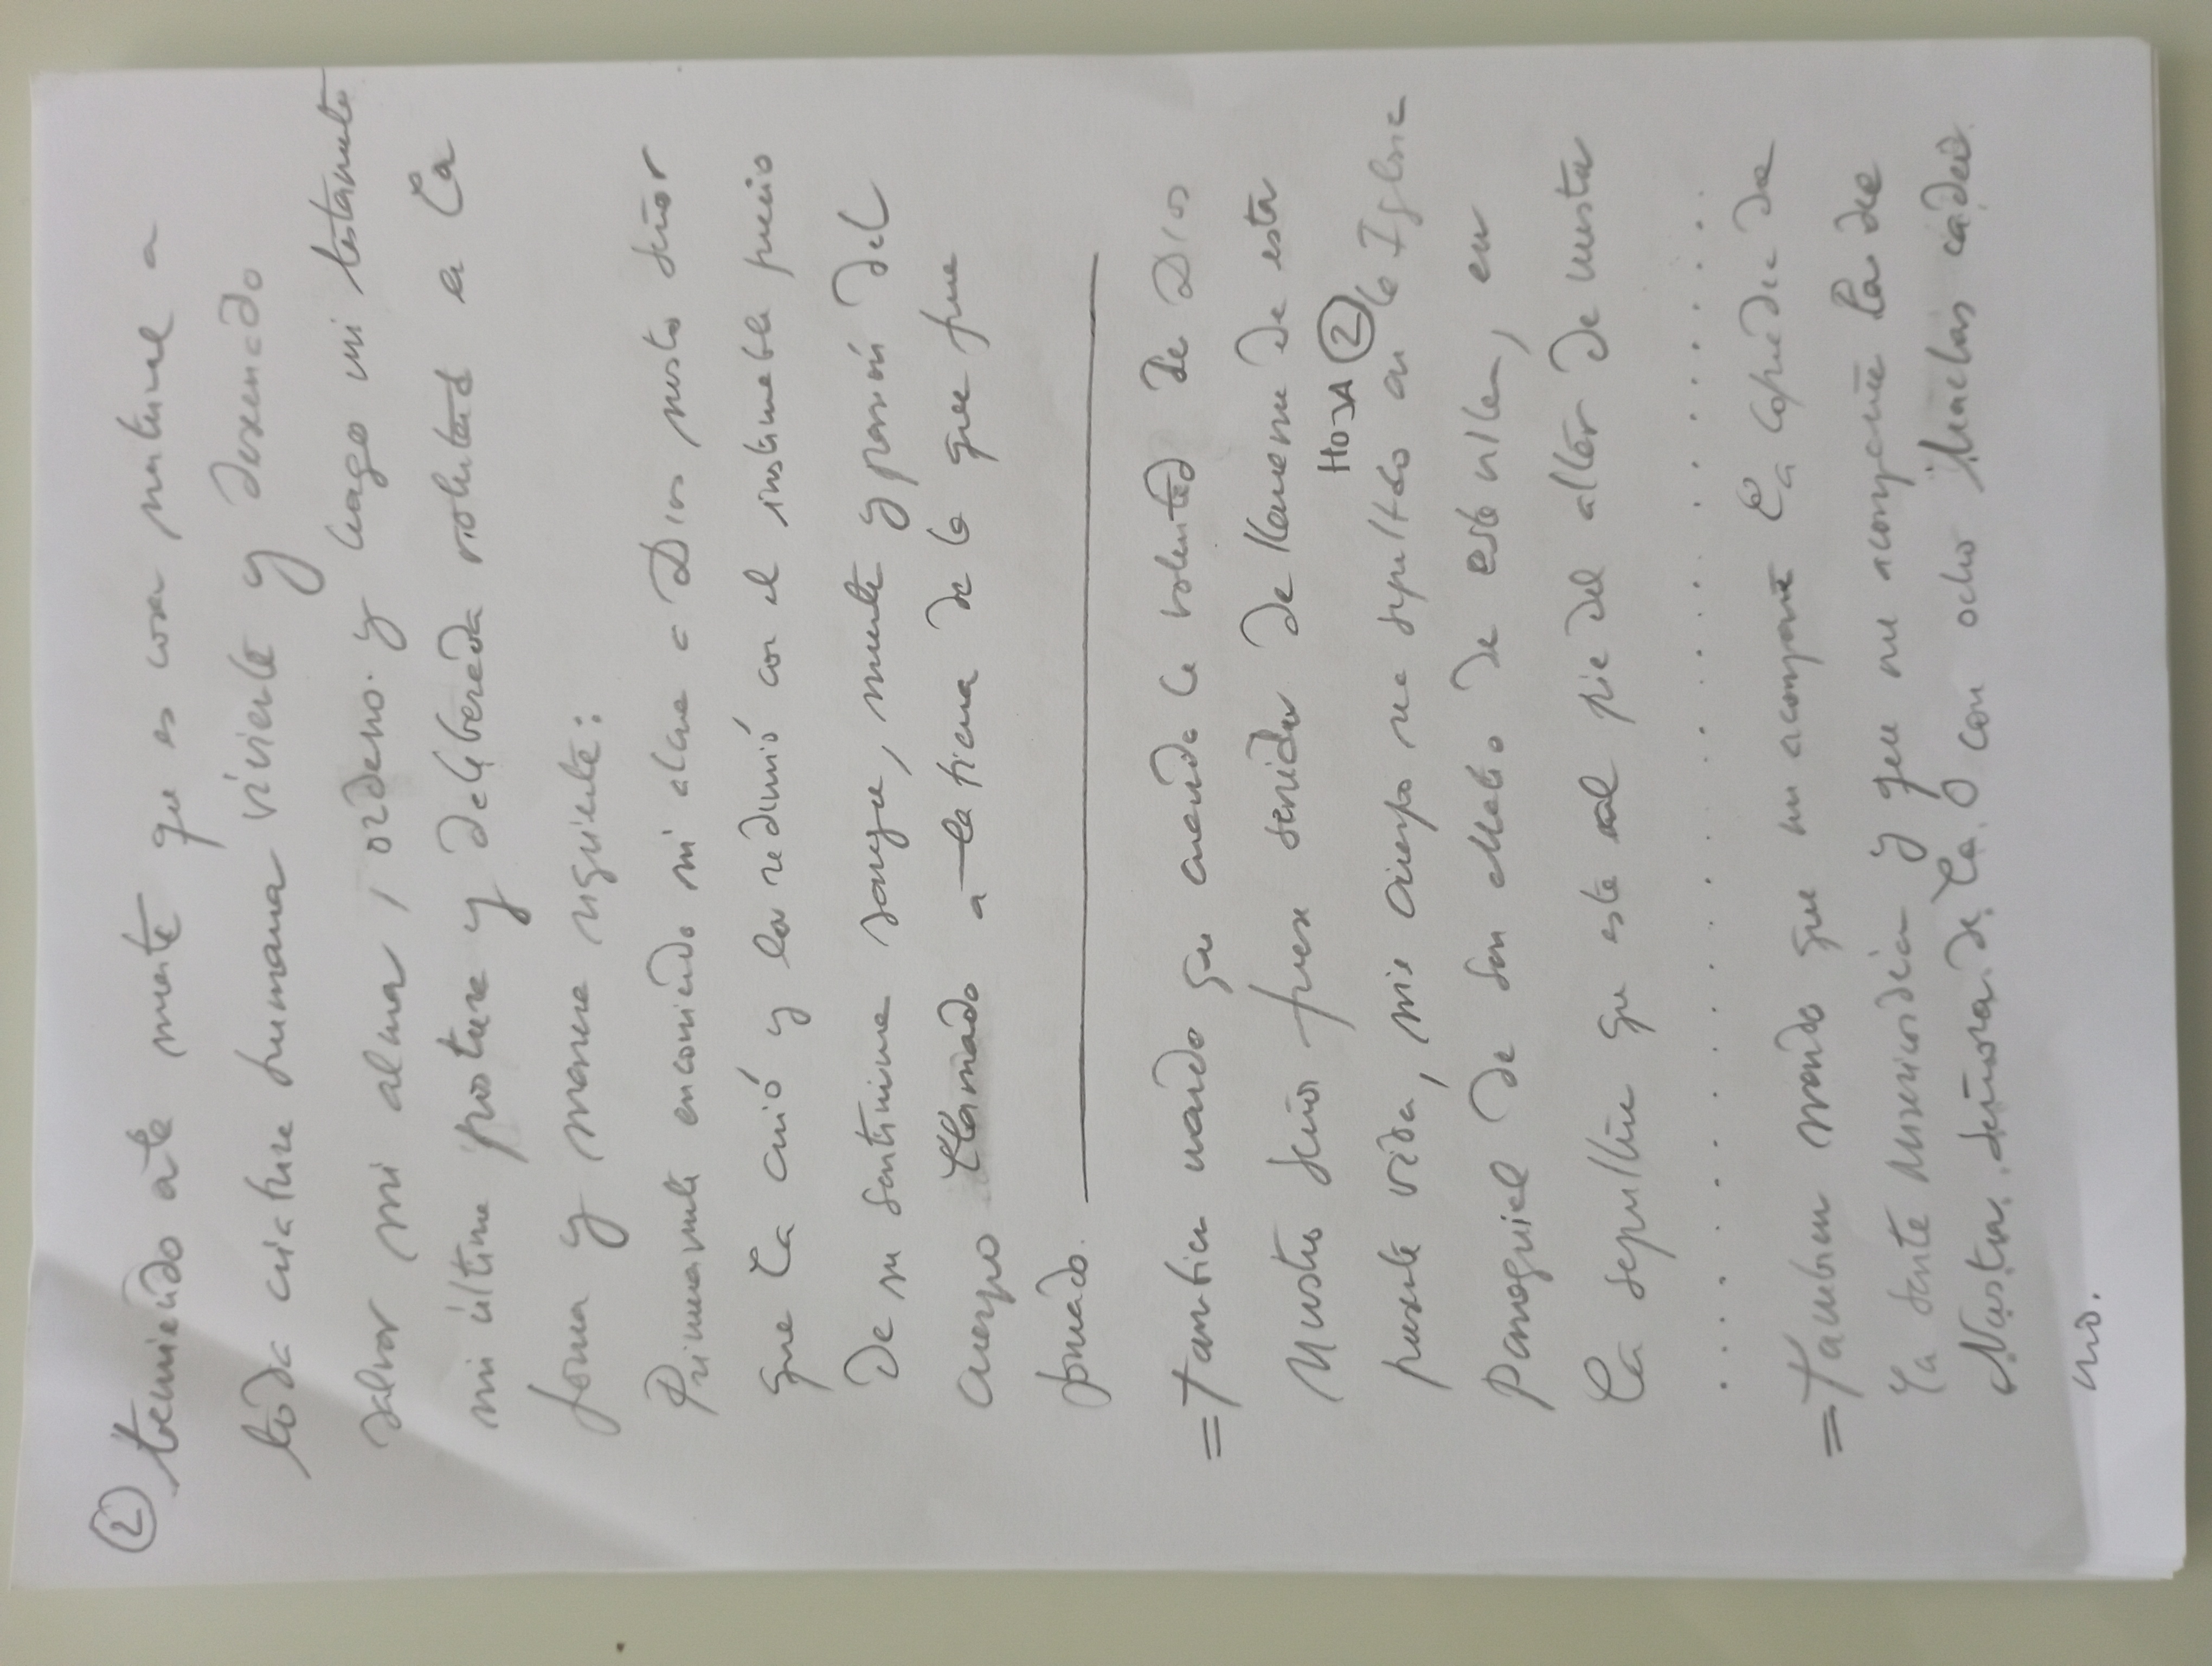 ② temiendo a la muerte que es cosa natural a
toda criatura humana viviente y deseando
salvar mi alma, ordeno y hago mi testamento
mi última postura y deliberada voluntad en la
forma y manera siguiente:
Primeramente encomiendo mi alma a Dios nuestro Señor
que la crió y la redimió con el inestimable precio
De su santísima sangre, muerte y pasión del
cuerpo llamado a la tierra de la que fue
formado.
= Tambien mando que cuando la voluntad De Dios
Nuestro Señor fuese servida de llevarme de esta
HOJA ②
presente vida, mi cuerpo sea sepultado en la Iglesia
Parroquial de San Mateo de esta villa, en
la sepultura que esta al pie del altar de nuestra
. . . . . . . . . . . . . . . . . . . . . . . .
= Tambien mando que me acompañe la cofradia de
la Santa Misericordia y que me acompañe la de
Nuestra Señora de la O con ocho hachas cada
uno.